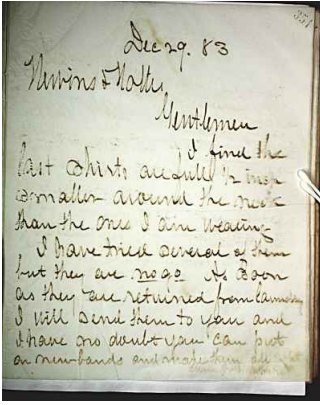 351
Dec 29. 83
Nevins &
Gentlemen
I find the
last shirts are full ½ inch
smaller around the neck
than the ones I am wearing
I have tried several of them
but they are no go As Soon
as they are returned from Laundry
I will send them to you and
I have no doubt you can put
on new bands and make them all